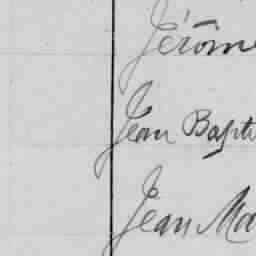 Jérôme
Jean Bapti
Jean Ma